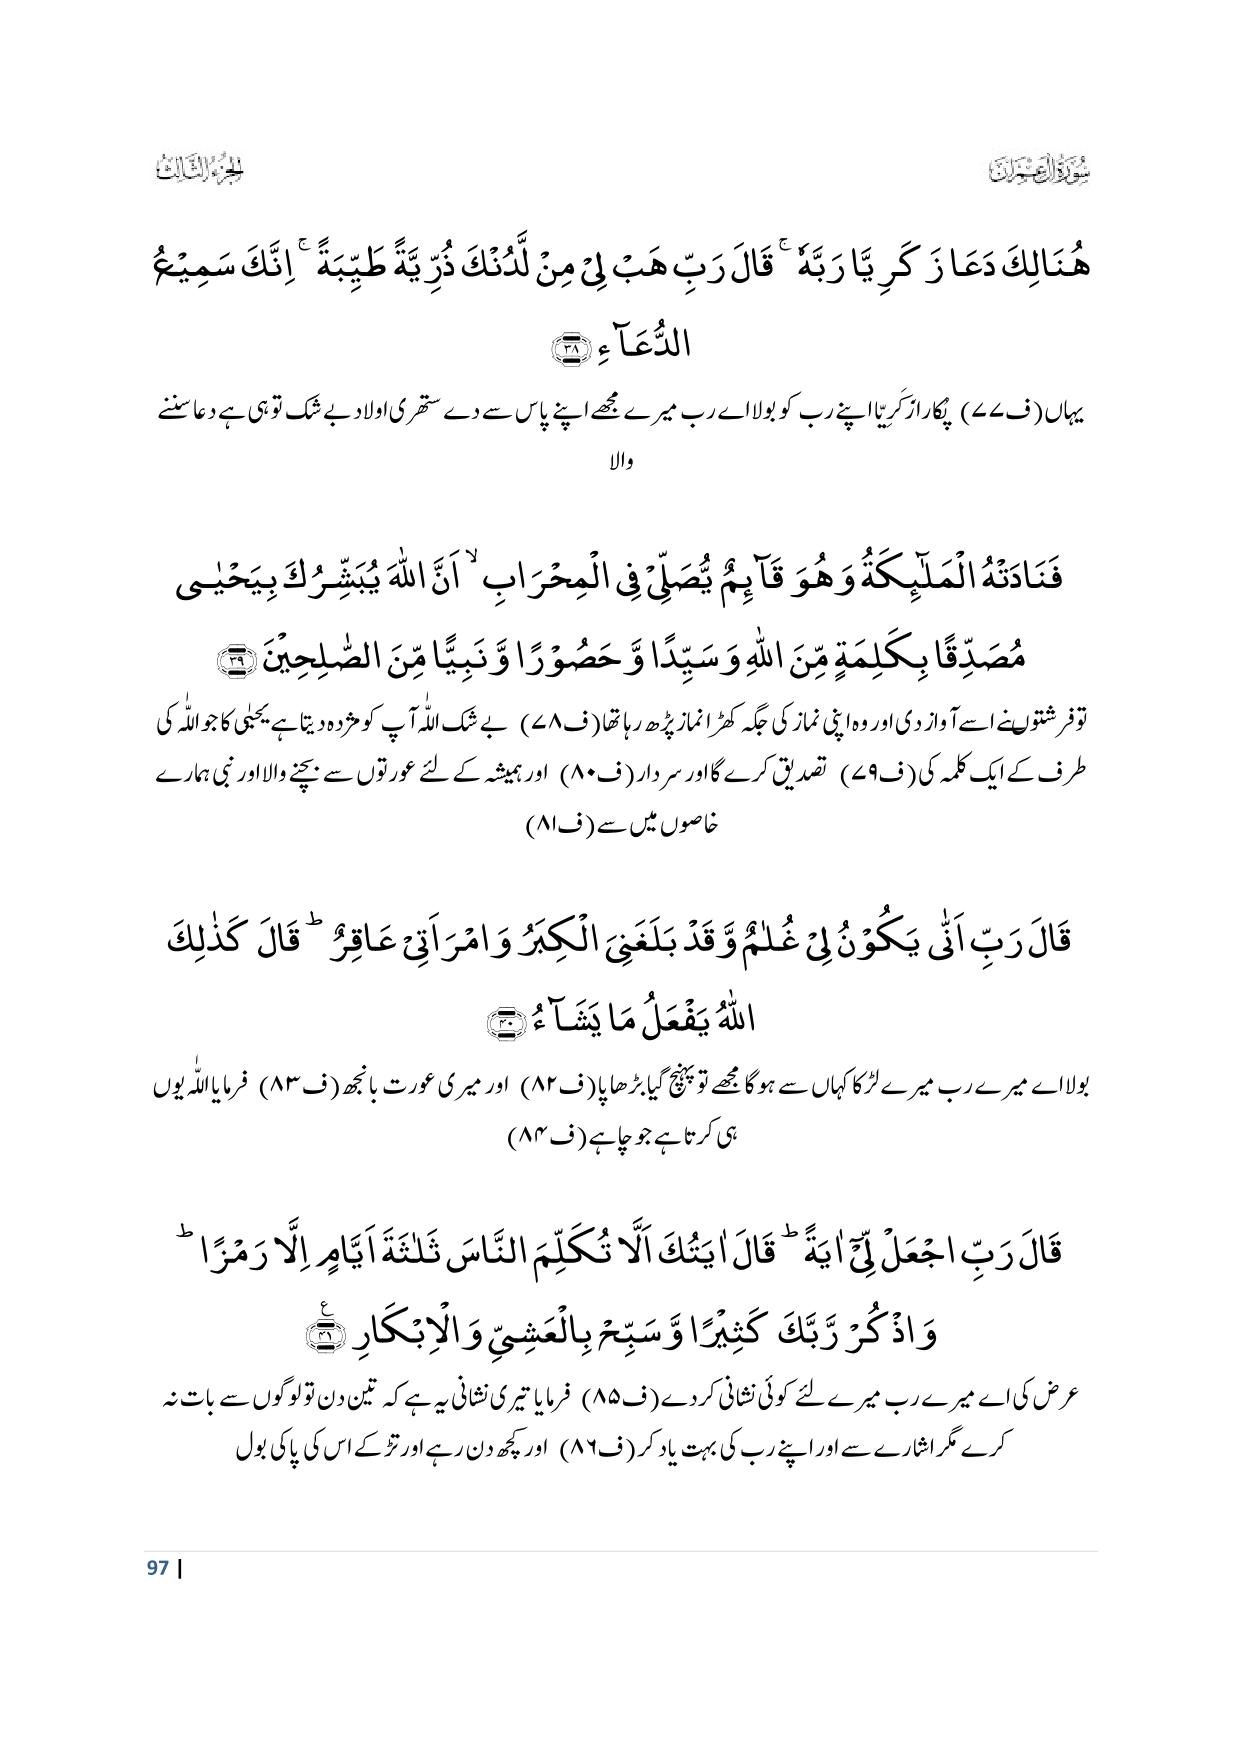 سُوْرَةُ اٰلِ عِمْرَان
الجُزءُ الثَّالِثُ
هُنَالِكَ دَعَا زَكَرِيَّا رَبَّهٗ ۚ قَالَ رَبِّ هَبْ لِیْ مِنْ لَّدُنْكَ ذُرِّيَّةً طَيِّبَةً ۚ اِنَّكَ سَمِيْعُ
الدُّعَآءِ ﴿۳۸﴾
یہاں (ف۷۷) پکارا زَکَرِیّا اپنے رب کو بولا اے رب میرے مجھے اپنے پاس سے دے ستھری اولاد بے شک تو ہی ہے دعا سننے
والا
فَنَادَتْهُ الْمَلٰٓىِٕكَةُ وَ هُوَ قَآىِٕمٌ يُّصَلِّیْ فِی الْمِحْرَابِ ۙ اَنَّ اللّٰهَ يُبَشِّرُكَ بِيَحْيٰى
مُصَدِّقًۢا بِكَلِمَةٍ مِّنَ اللّٰهِ وَ سَيِّدًا وَّ حَصُوْرًا وَّ نَبِيًّا مِّنَ الصّٰلِحِيْنَ ﴿۳۹﴾
تو فرشتوں نے اسے آواز دی اور وہ اپنی نماز کی جگہ کھڑا نماز پڑھ رہا تھا (ف۷۸) بے شک اللّٰہ آپ کو مژدہ دیتا ہے یحیٰی کا جو اللّٰہ کی
طرف کے ایک کلمہ کی (ف۷۹) تصدیق کرے گا اور سردار (ف۸۰) اور ہمیشہ کے لئے عورتوں سے بچنے والا اور نبی ہمارے
خاصوں میں سے (ف۸۱)
قَالَ رَبِّ اَنّٰى يَكُوْنُ لِیْ غُلٰمٌ وَّ قَدْ بَلَغَنِیَ الْكِبَرُ وَ امْرَاَتِیْ عَاقِرٌ ؕ قَالَ كَذٰلِكَ
اللّٰهُ يَفْعَلُ مَا يَشَآءُ ﴿۴۰﴾
بولا اے میرے رب میرے لڑکا کہاں سے ہوگا مجھے تو پہنچ گیا بڑھاپا (ف۸۲) اور میری عورت بانجھ (ف۸۳) فرمایا اللّٰہ یوں
ہی کرتا ہے جو چاہے (ف۸۴)
قَالَ رَبِّ اجْعَلْ لِّیْۤ اٰيَةً ؕ قَالَ اٰيَتُكَ اَلَّا تُكَلِّمَ النَّاسَ ثَلٰثَةَ اَيَّامٍ اِلَّا رَمْزًا ؕ
وَ اذْكُرْ رَّبَّكَ كَثِيْرًا وَّ سَبِّحْ بِالْعَشِیِّ وَ الْاِبْكَارِ ﴿۴۱﴾ ع
عرض کی اے میرے رب میرے لئے کوئی نشانی کردے (ف۸۵) فرمایا تیری نشانی یہ ہے کہ تین دن تو لوگوں سے بات نہ
کرے مگر اشارے سے اور اپنے رب کی بہت یاد کر (ف۸۶) اور کچھ دن رہے اور تڑکے اس کی پاکی بول
97 |